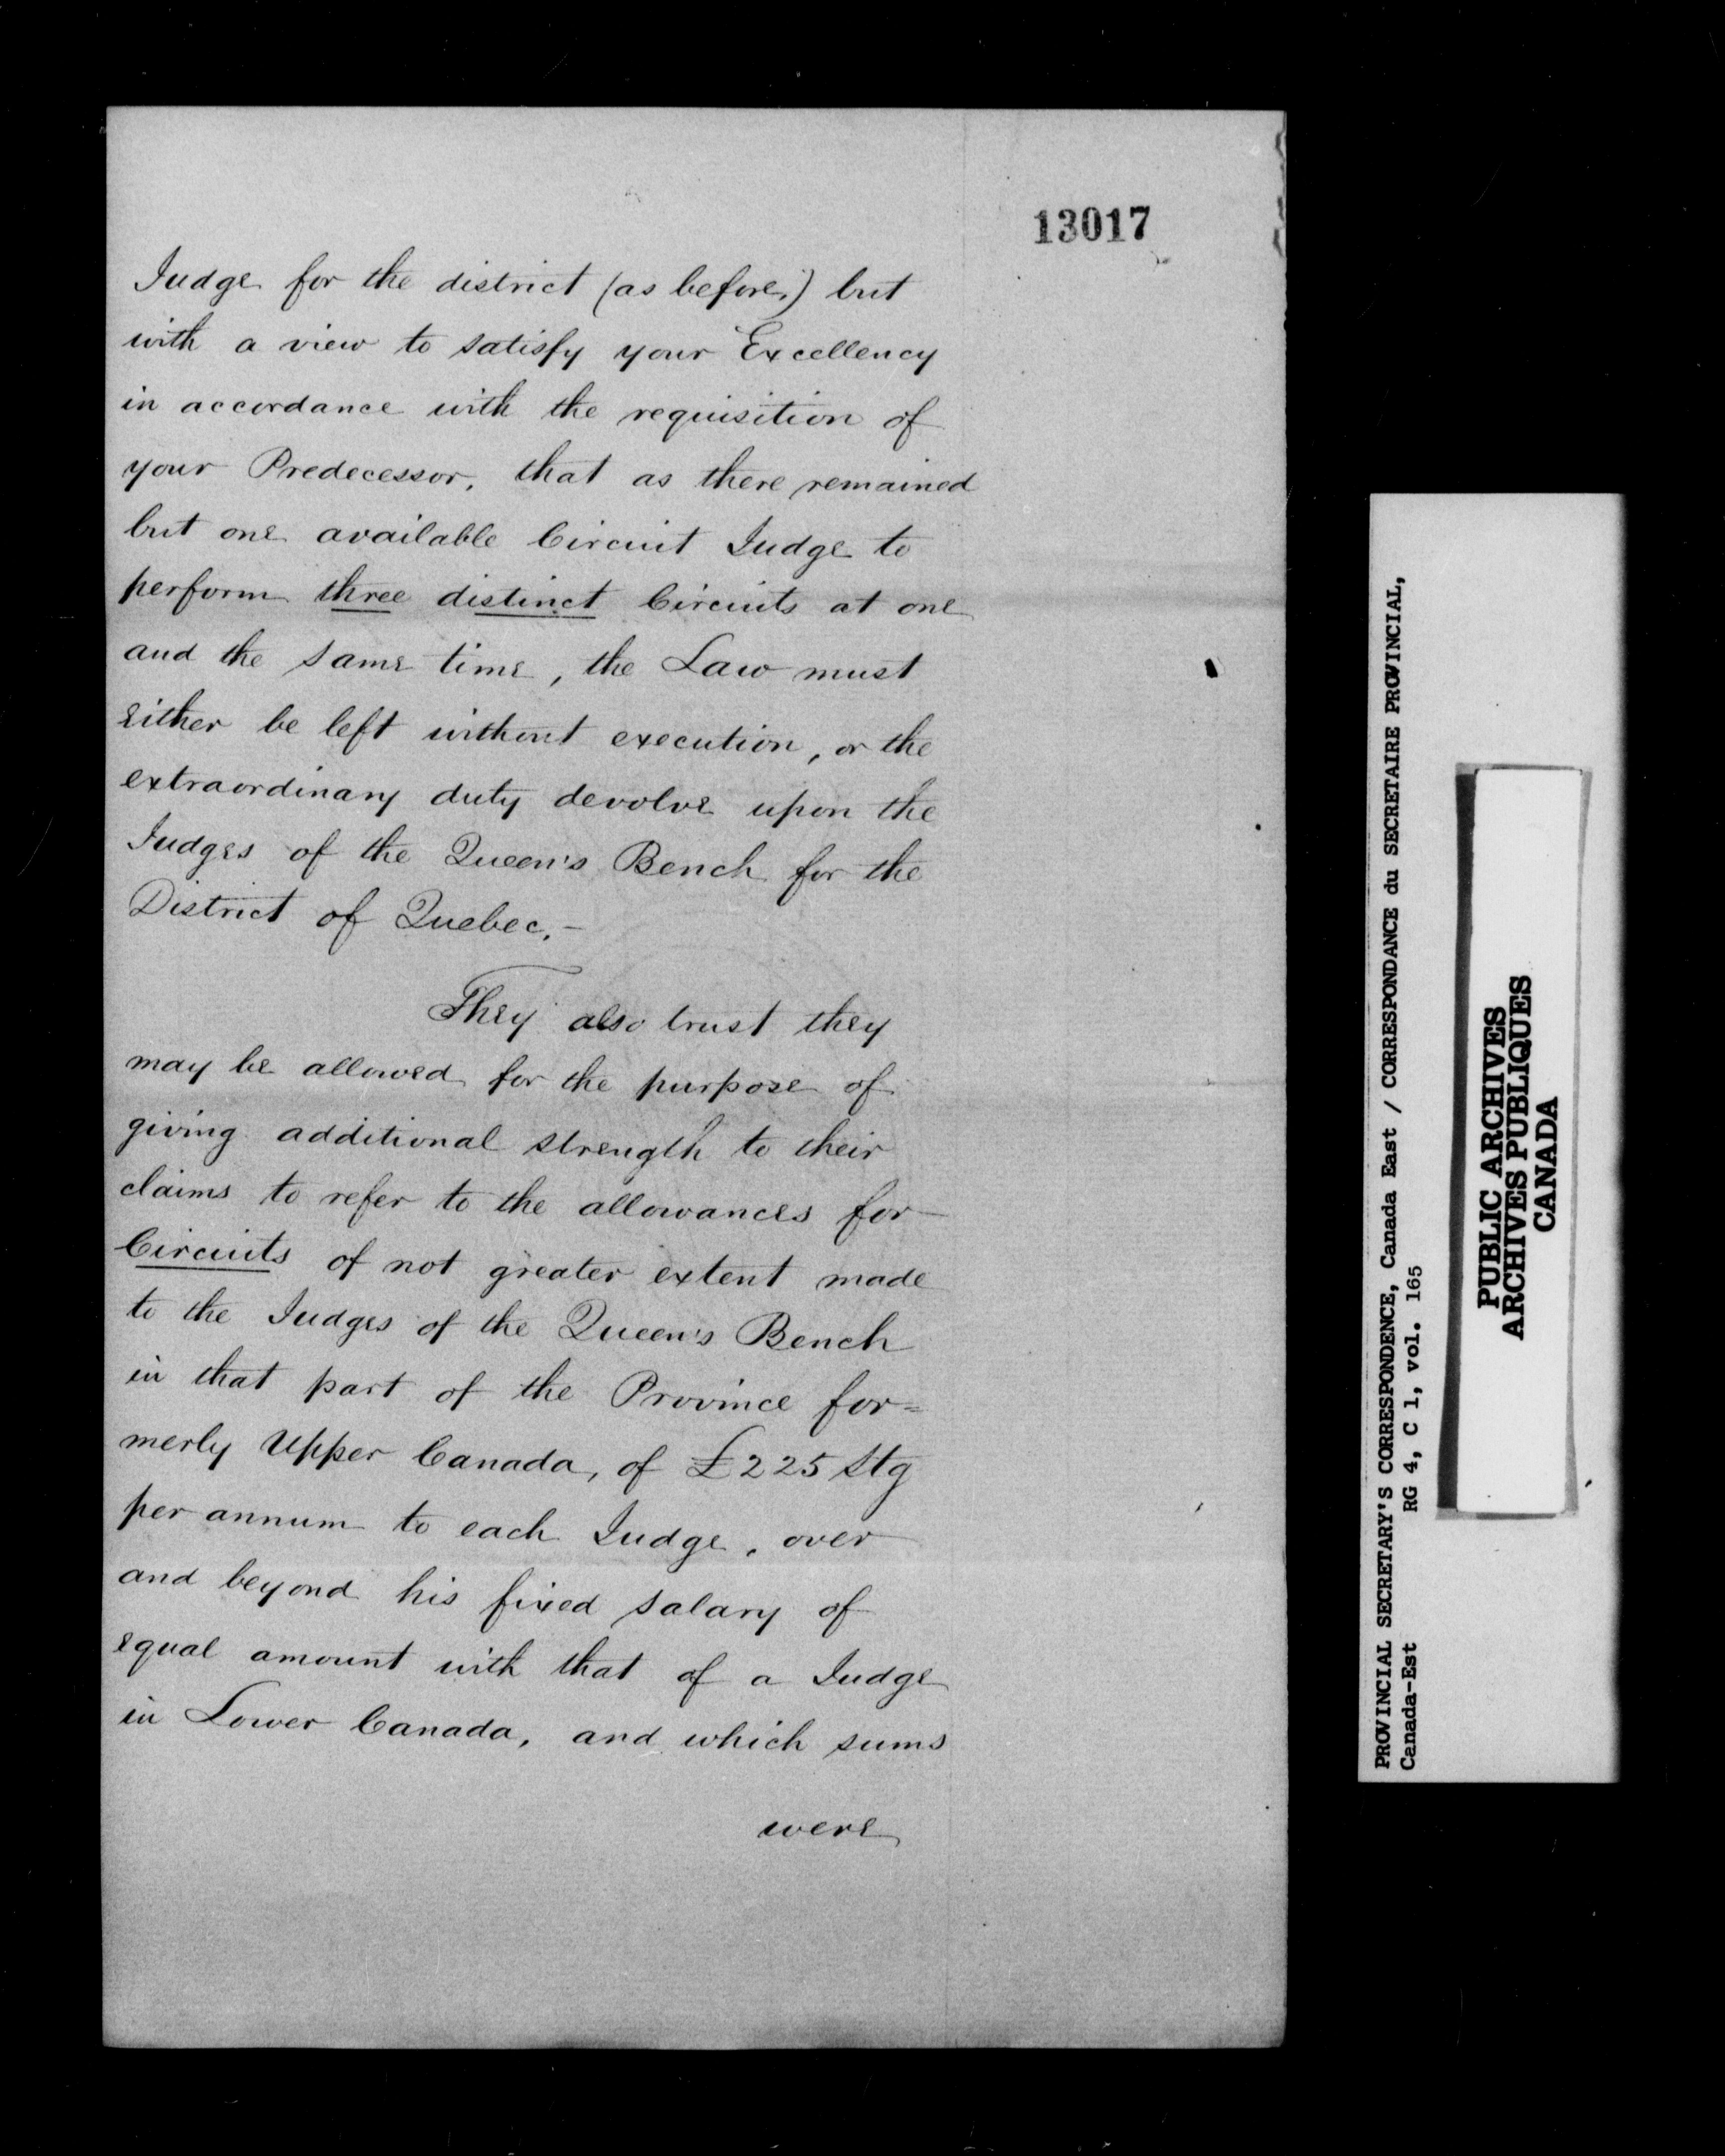 13017
Judge for the district (as before,) but
with a view to satisfy your Excellency
in accordance with the requisition of
your Predecessor, that as there remained
but one available Circuit Judge to
perform three distinct Circuits at one
and the same time, the Law must
either be left without execution, or the
extraordinary duty devolve upon the
Judges of the Queen's Bench for the
District of Quebec.-
They also trust they
may be allowed for the purpose of
giving additional strength to their
claims to refer to the allowances for
Circuits of not greater extent made
to the Judges of the Queen's Bench
in that part of the Province for=
merly Upper Canada, of £225 Stg
per annum to each Judge, over
and beyond his fixed salary of
equal amount with that of a Judge
in Lower Canada, and which sums
were
PROVINCIAL SECRETARY'S CORRESPONDENCE, Canada East / CORRESPONDANCE du SECRETAIRE PROVINCIAL,
Canada-Est RG 4, C 1, vol. 165
PUBLIC ARCHIVES
ARCHIVES PUBLIQUES
CANADA